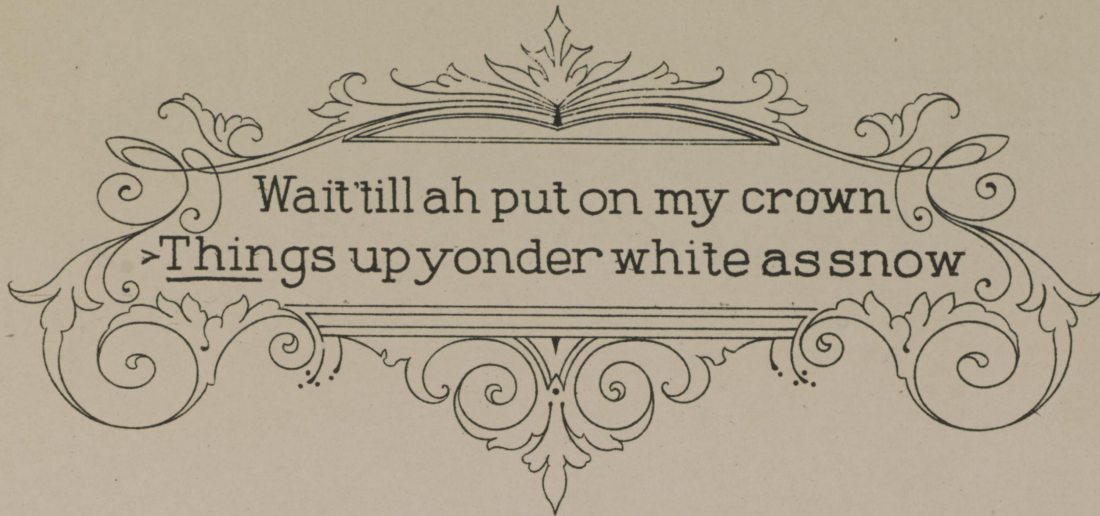 Wait 'till ah put on my crown
>Things up yonder white as snow